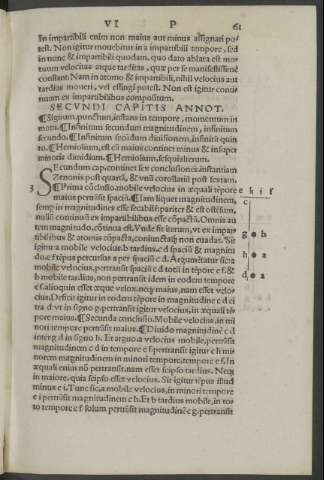 VI P 61
In impartibili enim non maius aut minus assignari po⸗
test. Non igitur mouebitur in a impartibili tempore, sed
in nunc & impartibili quodam, quo dato ablata est mo⸗
tuum velocitas atque tarditas, quæ per se manifestissime
constant. Nam in atomo & impartibili, nihil velocius aut
tardius moueri, vel effingi potest. Non est igitur conti⸗
nuum ex impartibilibus compositum.
SECVNDI CAPITIS ANNOT.
¶Signum, punctum, instans in tempore, momentum in
motu. ¶Infinitum secundum magnitudinem, infinitum
secundo. ¶Infinitum secũdum diuisionem, infinitũ quin
to. ¶Hemiolium, est cũ maius continet minus & insuper
minoris dimidium. ¶Hemiolium, sesquialterum.
Secundum cap. continet sex conclusiones, instantiam
Zenonis post quartã, & vnũ corollariũ post sextam.
3 ¶Prima cõclusio. mobile velocius in æquali tẽpore e k i f
maius pertrãsit spaciũ. ¶Iam liquet magnitudinem, c
semp in magnitudines esse secabilẽ: pariter & est ostẽsum,
nullũ continuũ ex impartibilibus esse cõpactũ. Omnis au
tem magnitudo, cõtinua est. Vnde fit iterum, vt ex impar⸗ g b
tibilibus & atomis cõpacta, coniunctaq̃ non euadat. Sit
igitur a mobile velocius. b tardius. c d spaciũ & magnitu h a
do. e f tẽpus percursus a per spaciũ c d. Arguẽtatur sic: a
mobile velocius, pertransit spaciũ c d totũ in tẽpore e f. & d a
b mobile tardius, non pertransit idem in eodem tempore
e f. alioquin esset æque velox. neq̃ maius, nam esset velo⸗
cius. Deficit igitur in eodem tẽpore in magnitudine c d ci
tra d. vt in signo g. pertransit igitur velocius, in æquali tẽ
pore maius. ¶Secunda conclusio. Mobile velocius, in mi
nori tempore pertrãsit maius. ¶Diuido magnitudinẽ c d
inter g d in signo h. Et arguo. a velocius mobile, pertrãsit
magnitudinem c d in tempore e f. pertransit igitur c h mi
norem magnitudinem in minori tempore, tempore e f. In
æquali enim nõ pertransit, nam esset seipso tardius. Neq̃
in maiore. quia seipso esset velocius. Sit igitur tẽpus illud
minus e i. Tunc sic, a mobile velocius, in minori tempore
e i pertrãsit magnitudinem c h. Et b tardius mobile, in to⸗
to tempore e f solum pertrãsit magnitudinẽ c g. pertransit